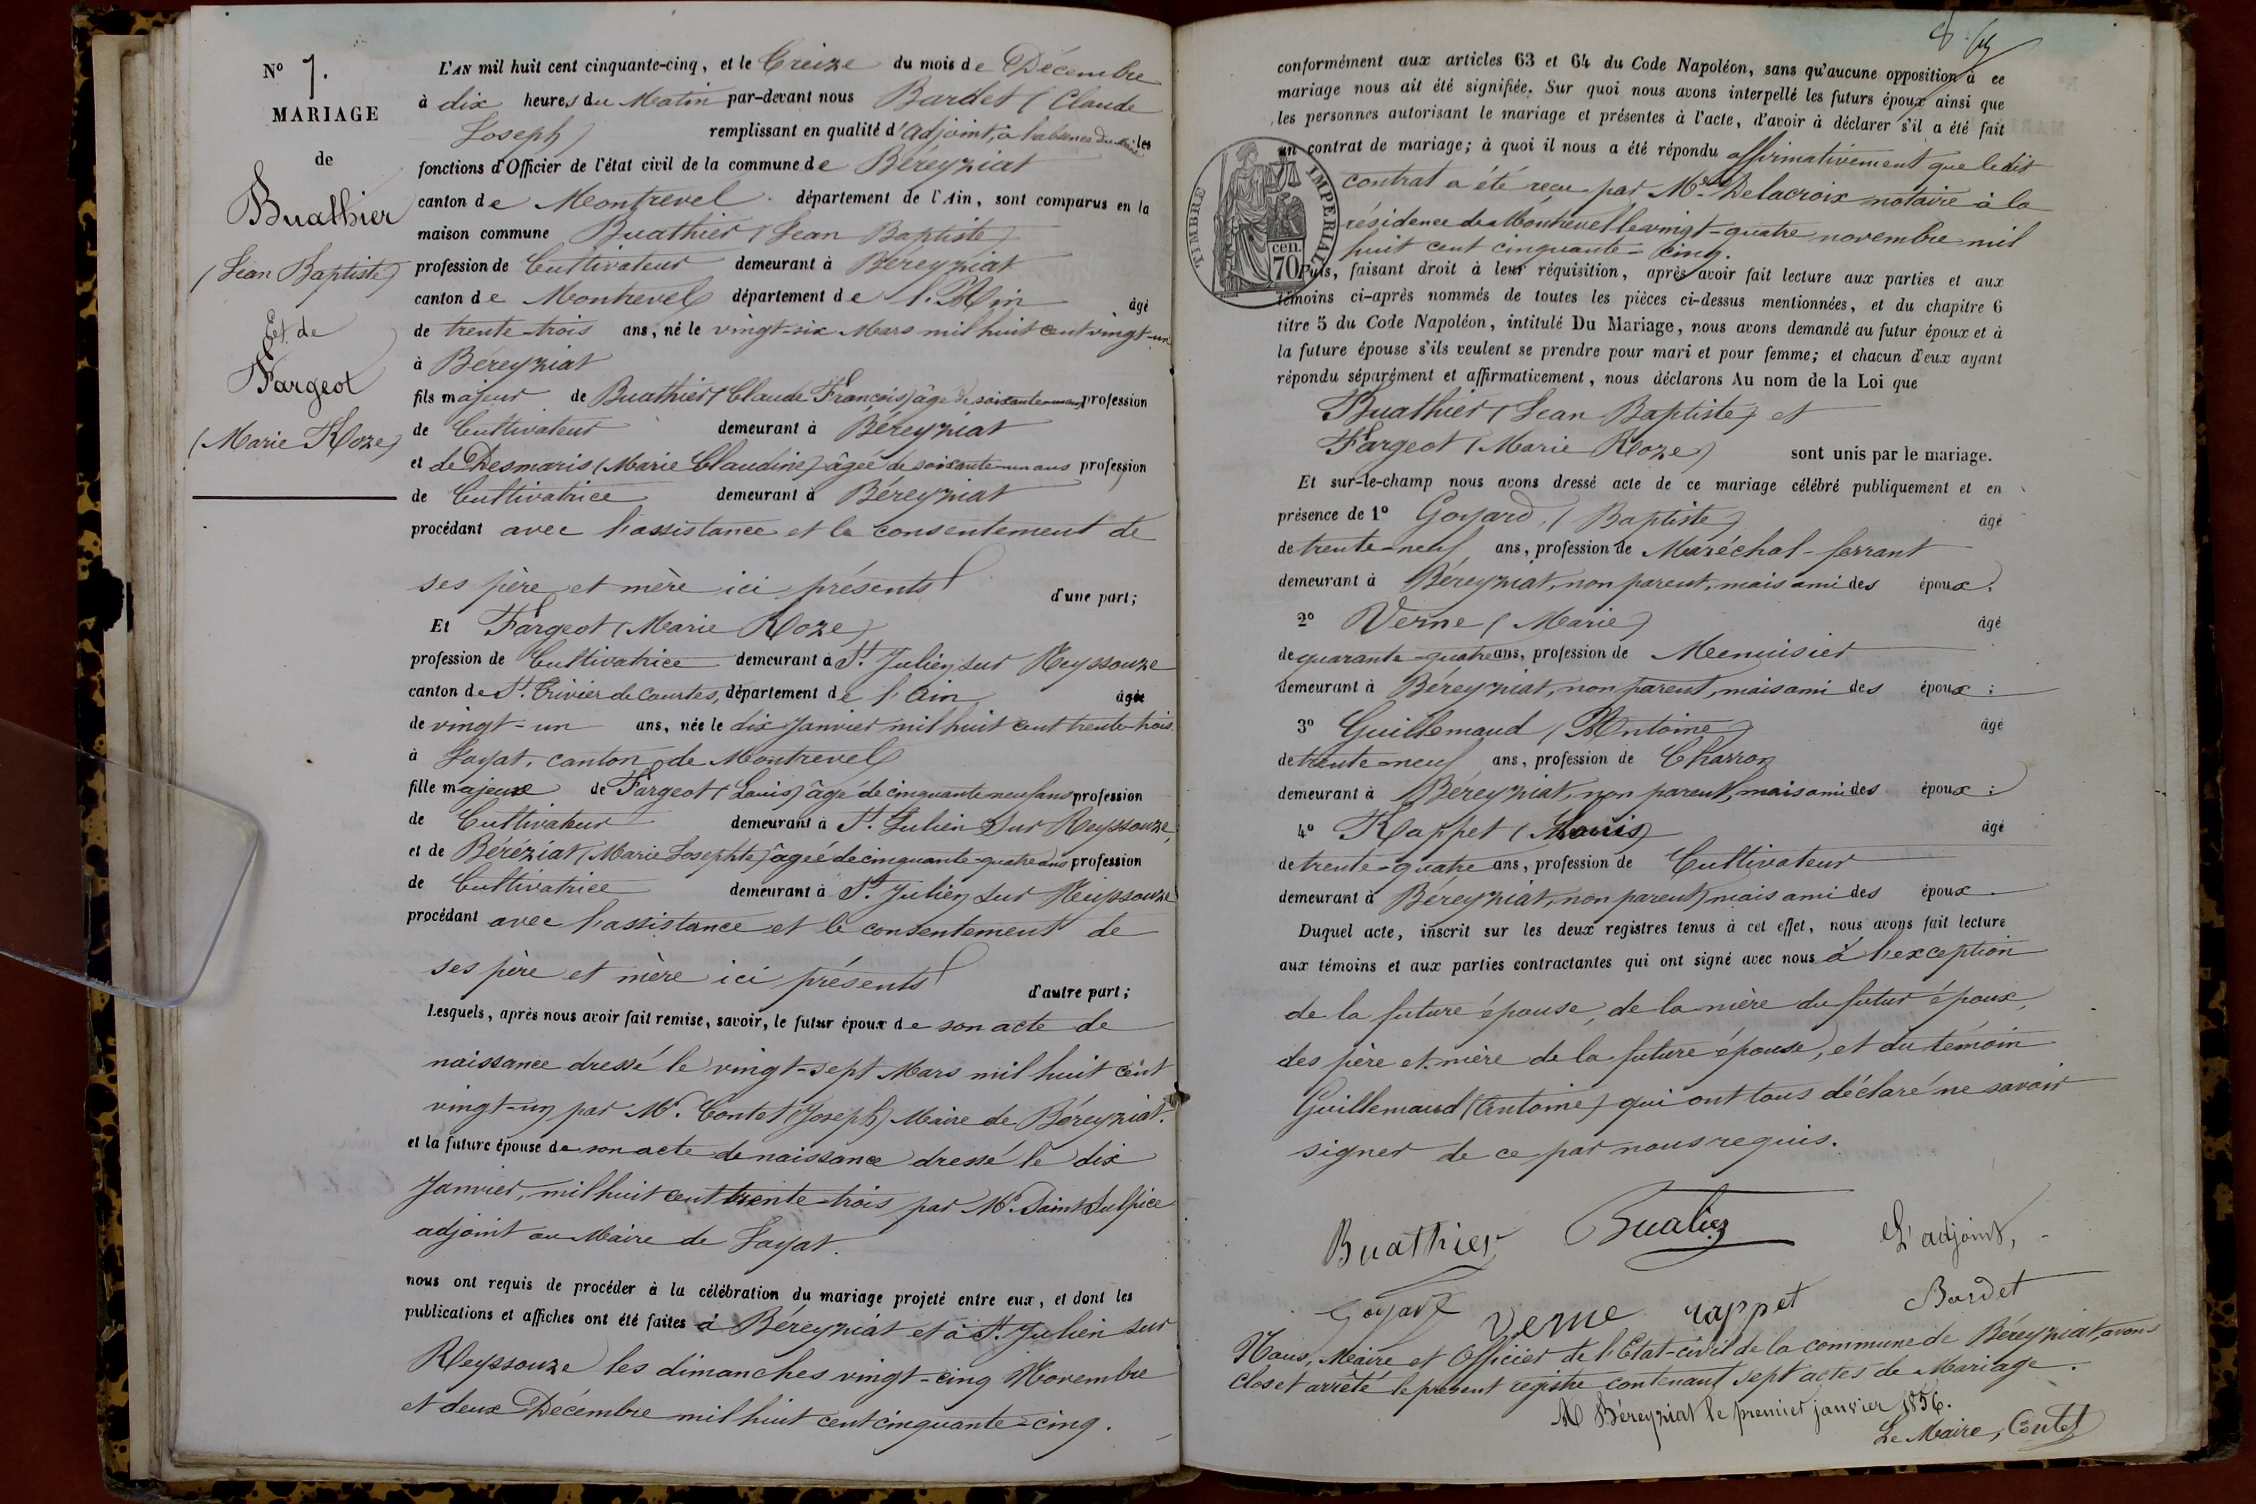 N° 7.
MARIAGE
de
Buathier
(Jean Baptiste)
Et de
Fargeot
(Marie Roze)
L'AN mil huit cent cinquante-cinq, et le Treize du mois de Décembre
à dix heures du Matin par-devant nous Bardet (Claude
Joseph) remplissant en qualité d'Adjoint, à l'absence du Maire les
fonctions d'Officier de l'état civil de la commune de Béreyziat
canton de Montrevel département de l'Ain, sont comparus en la
maison commune Buathier (Jean Baptiste)
profession de Cultivateur demeurant à Béreyziat
canton de Montrevel département de l'Ain âgé
de trente-trois ans, né le vingt-six Mars mil huit cent vingt-un
à Béreyziat
fils majeur de Buathier (Claude François) âgé de soixante-un ans profession
de Cultivateur demeurant à Béreyziat
et de Desmaris (Marie Claudine) âgée de soixante-un ans profession
de Cultivatrice demeurant à Béreyziat
procédant avec l'assistance et le consentement de
ses père et mère ici présents d'une part;
Et Fargeot (Marie Roze)
profession de Cultivatrice demeurant à St. Julien sur Reyssouze
canton de St. Trivier de Courtes, département de l'Ain âgée
de vingt-un ans, née le dix Janvier mil huit cent trente-trois
à Jayat, canton de Montrevel
fille majeure de Fargeot (Louis) âgé de cinquante neuf ans profession
de Cultivateur demeurant à St. Julien sur Reyssouze,
et de Béréziat (Marie Josephte) âgée de cinquante-quatre ans profession
de Cultivatrice demeurant à St. Julien sur Reyssouze
procédant avec l'assistance et le consentement de
ses père et mère ici présents d'autre part;
Lesquels, après nous avoir fait remise, savoir, le futur époux de son acte de
naissance dressé le vingt-sept Mars mil huit cent
vingt-un par Mr. Contet (Joseph) Maire de Béreyziat.
et la future épouse de son acte de naissance dressé le dix
Janvier, mil huit cent trente-trois par Mr. Saint Sulpice
adjoint au Maire de Jayat.
nous ont requis de procéder à la célébration du mariage projeté entre eux, et dont les
publications et affiches ont été faites à Béreyziat et à St. Julien sur
Reyssouze les dimanches vingt-cinq Novembre
et deux Décembre mil huit cent cinquante-cinq.
conformément aux articles 63 et 64 du Code Napoléon, sans qu'aucune opposition à ce
mariage nous ait été signifiée. Sur quoi nous avons interpellé les futurs époux ainsi que
les personnes autorisant le mariage et présentes à l'acte, d'avoir à déclarer s'il a été fait
un contrat de mariage; à quoi il nous a été répondu affirmativement que ledit
contrat a été reçu par Me. Delacroix notaire à la
résidence de Montrevel le vingt-quatre novembre mil
huit cent cinquante-cinq.
TIMBRE IMPERIAL
70 cen.
Puis, faisant droit à leur réquisition, après avoir fait lecture aux parties et aux
témoins ci-après nommés de toutes les pièces ci-dessus mentionnées, et du chapitre 6
titre 5 du Code Napoléon, intitulé Du Mariage, nous avons demandé au futur époux et à
la future épouse s'ils veulent se prendre pour mari et pour femme; et chacun d'eux ayant
répondu séparément et affirmativement, nous déclarons Au nom de la Loi que
Buathier (Jean Baptiste) et
Fargeot (Marie Roze) sont unis par le mariage.
Et sur-le-champ nous avons dressé acte de ce mariage célébré publiquement et en
présence de 1° Goyard, (Baptiste) âgé
de trente-neuf ans, profession de Maréchal-ferrant
demeurant à Béreyziat, non parent, mais ami des époux;
2° Verne (Marie) âgé
de quarante-quatre ans, profession de Menuisier
demeurant à Béreyziat, non parent, mais ami des époux;
3° Guillemaud (Antoine) âgé
de trente-neuf ans, profession de Charron
demeurant à Béreyziat, non parent, mais ami des époux;
4° Rappet (Louis) âgé
de trente-quatre ans, profession de Cultivateur
demeurant à Béreyziat, non parent, mais ami des époux
Duquel acte, inscrit sur les deux registres tenus à cet effet, nous avons fait lecture
aux témoins et aux parties contractantes qui ont signé avec nous à l'exception
de la future épouse, de la mère du futur époux,
des père et mère de la future épouse, et du témoin
Guillemaud (Antoine) qui ont tous déclaré ne savoir
signer de ce par nous requis.
Buathier Buatiez L'adjoint,
Goyard Verne rappet Bardet
Nous, Maire et Officier de l'Etat-civil de la commune de Béreyziat, avons
clos et arrêté le présent registre contenant sept actes de Mariage.
A Béreyziat le premier janvier 1856.
Le Maire, Contet